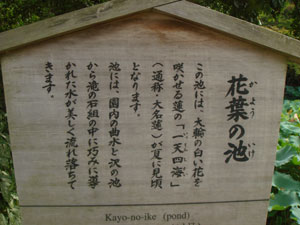 花葉の池
かよう いけ
この池には、大輪の白い花を
咲かせる蓮の「一天四海」
(通称・大名蓮)が夏に見頃
となります。
池には、園内の曲水と沢の池
から滝の石組の中に巧みに導
かれた水が美しく流れ落ちて
きます。
Kayo-no-ike (pond)